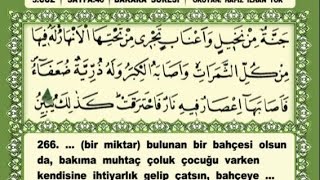 جَنَّةٌ مِنْ نَخٖيلٍ وَاَعْنَابٍ تَجْرٖى مِنْ تَحْتِهَا الْاَنْهَارُ لَهُ فٖيهَا
مِنْ كُلِّ الثَّمَرَاتِ وَاَصَابَهُ الْكِبَرُ وَلَهُ ذُرِّيَّةٌ ضُعَفَٓاءُ
فَاَصَابَهَٓا اِعْصَارٌ فٖيهِ نَارٌ فَاحْتَرَقَتْ كَذٰلِكَ يُبَيِّنُ
266. ... (bir miktar) bulunan bir bahçesi olsun
da, bakıma muhtaç çoluk çocuğu varken
kendisine ihtiyarlık gelip çatsın, bahçeye ...